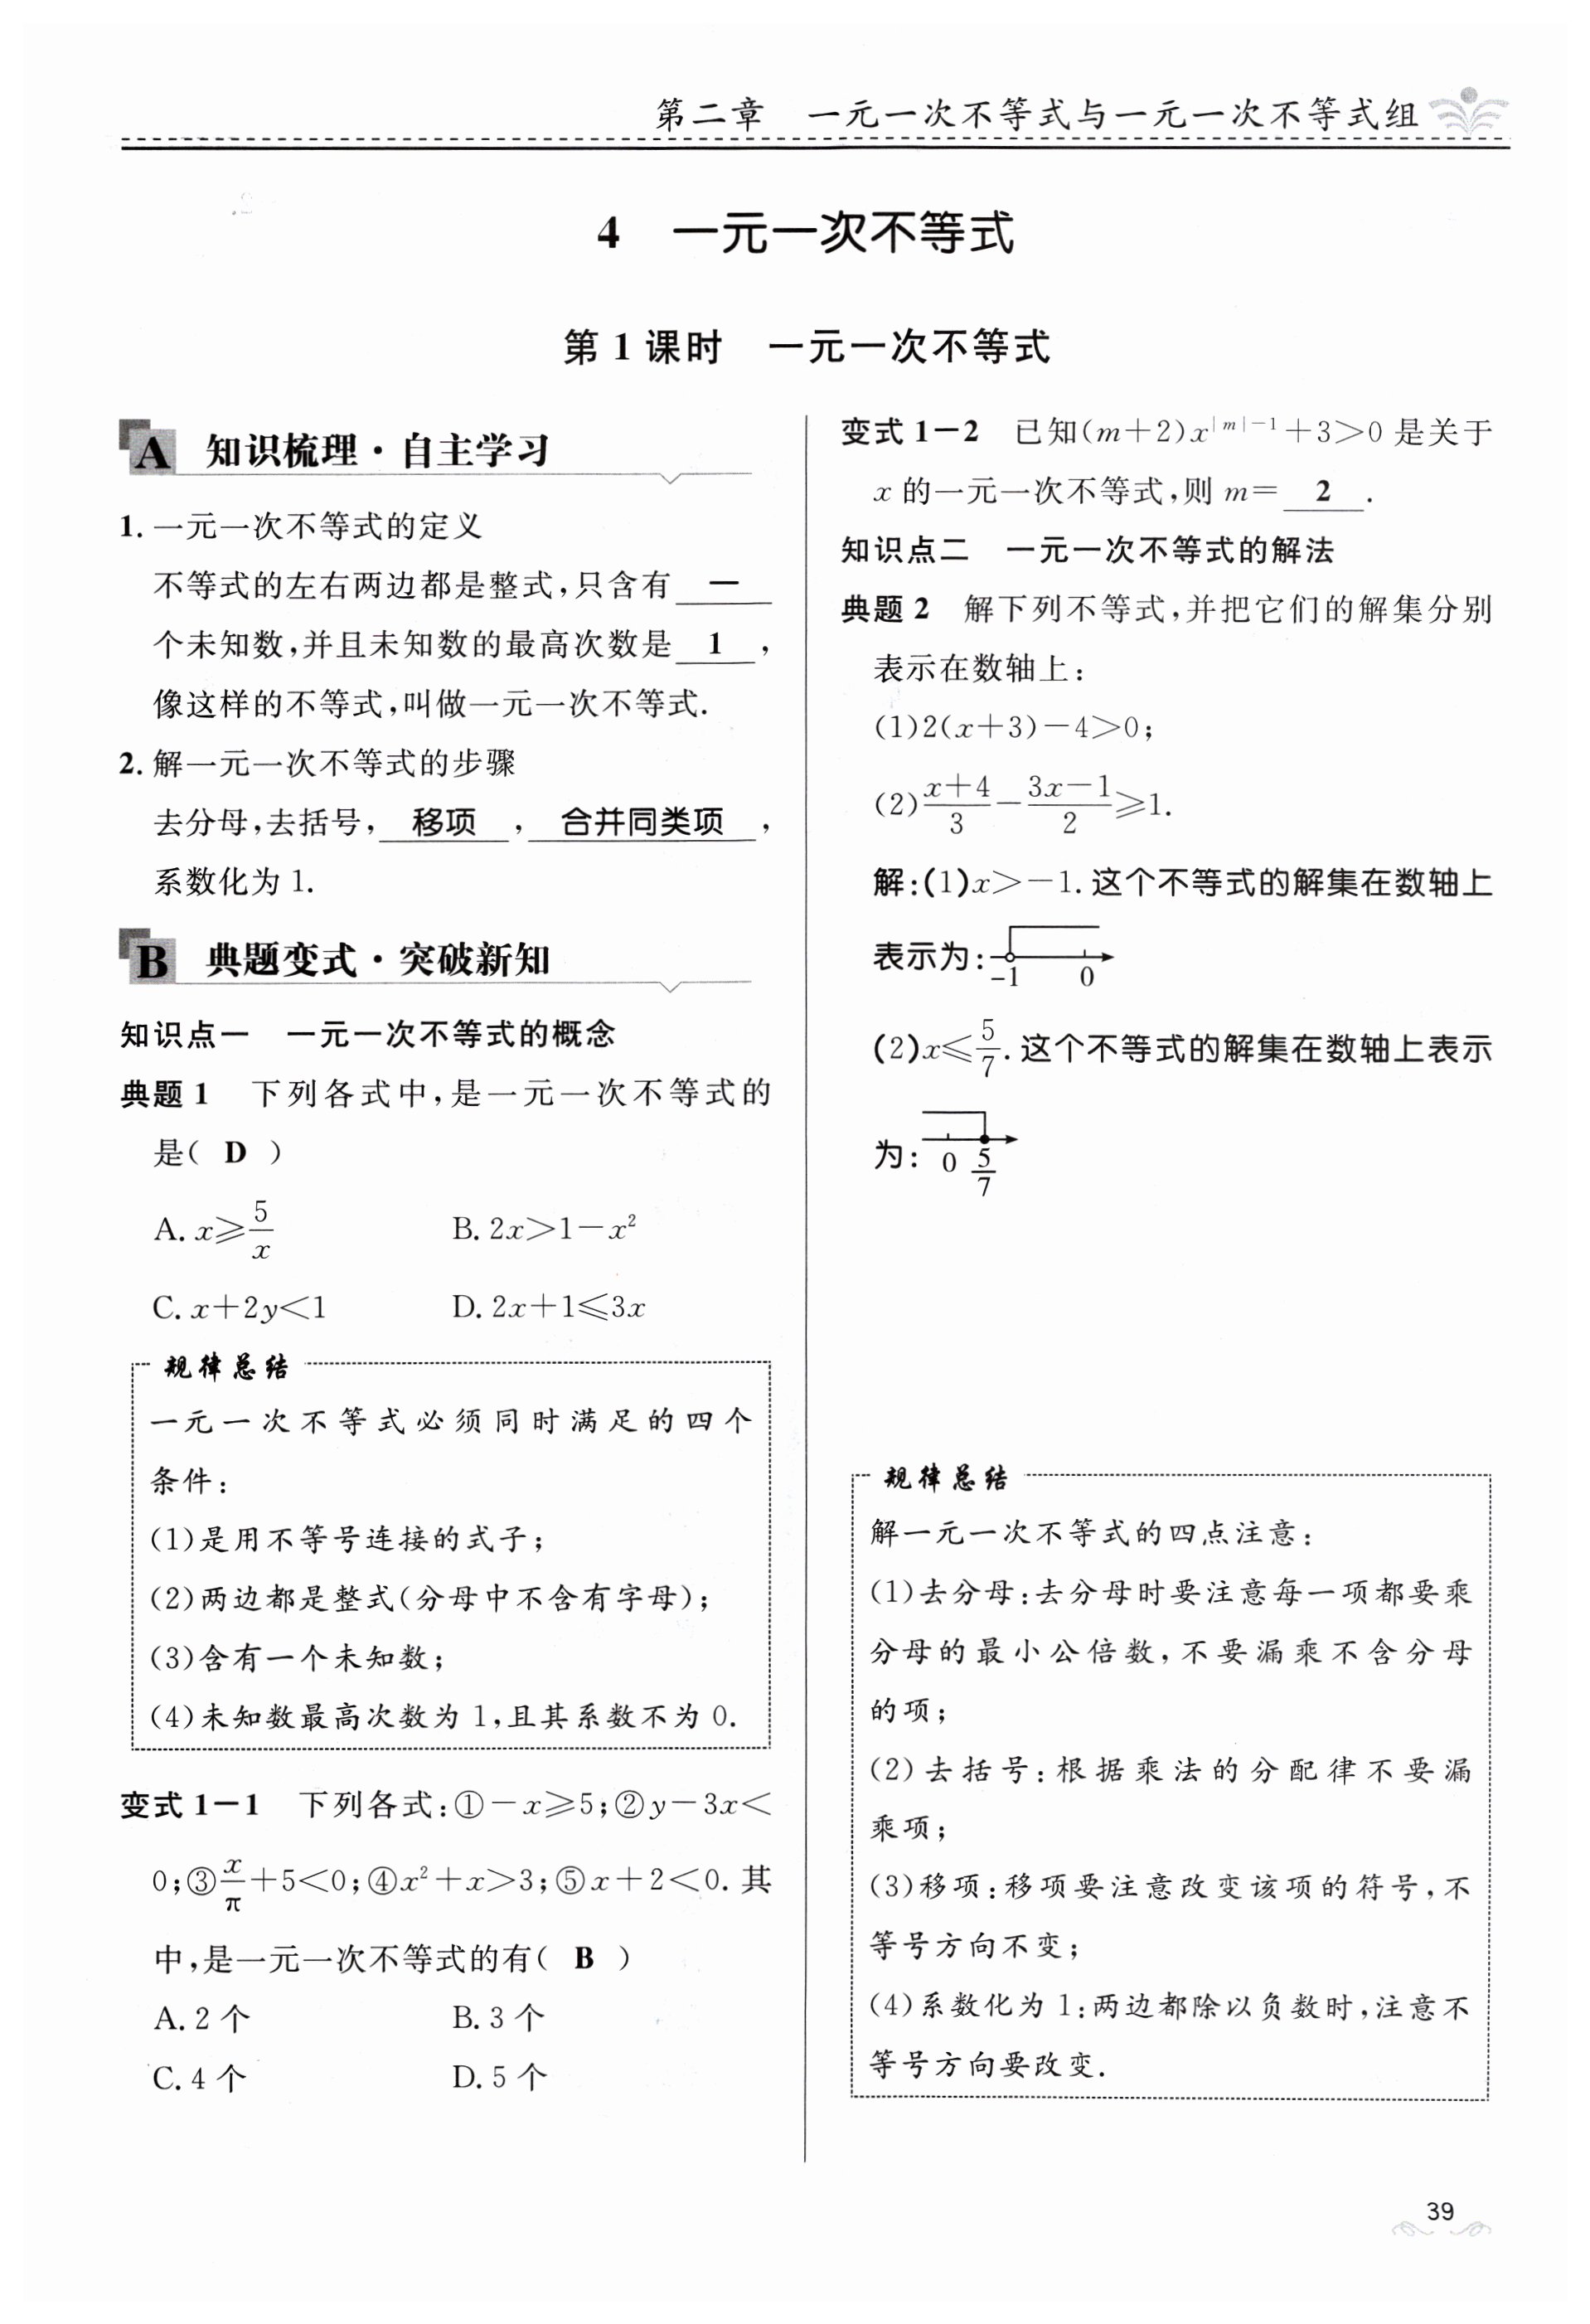 第二章 一元一次不等式与一元一次不等式组
4 一元一次不等式
第1课时 一元一次不等式
A 知识梳理·自主学习
1. 一元一次不等式的定义
不等式的左右两边都是整式,只含有 一
个未知数,并且未知数的最高次数是 1 ,
像这样的不等式,叫做一元一次不等式.
2. 解一元一次不等式的步骤
去分母,去括号, 移项 , 合并同类项 ,
系数化为 1.
B 典题变式·突破新知
知识点一 一元一次不等式的概念
典题1 下列各式中,是一元一次不等式的
是( D )
A. x≥5/x B. 2x>1-x²
C. x+2y<1 D. 2x+1≤3x
规律总结
一元一次不等式必须同时满足的四个
条件:
(1)是用不等号连接的式子;
(2)两边都是整式(分母中不含有字母);
(3)含有一个未知数;
(4)未知数最高次数为 1,且其系数不为 0.
变式1-1 下列各式:①-x≥5;②y-3x<
0;③x/π+5<0;④x²+x>3;⑤x+2<0. 其
中,是一元一次不等式的有( B )
A. 2个 B. 3个
C. 4个 D. 5个
变式1-2 已知(m+2)x^{|m|-1}+3>0 是关于
x 的一元一次不等式,则 m= 2 .
知识点二 一元一次不等式的解法
典题2 解下列不等式,并把它们的解集分别
表示在数轴上:
(1)2(x+3)-4>0;
(2)(x+4)/3-(3x-1)/2≥1.
解:(1)x>-1. 这个不等式的解集在数轴上
表示为: -1 0
(2)x≤5/7. 这个不等式的解集在数轴上表示
为: 0 5/7
规律总结
解一元一次不等式的四点注意:
(1)去分母:去分母时要注意每一项都要乘
分母的最小公倍数,不要漏乘不含分母
的项;
(2)去括号:根据乘法的分配律不要漏
乘项;
(3)移项:移项要注意改变该项的符号,不
等号方向不变;
(4)系数化为 1:两边都除以负数时,注意不
等号方向要改变.
39